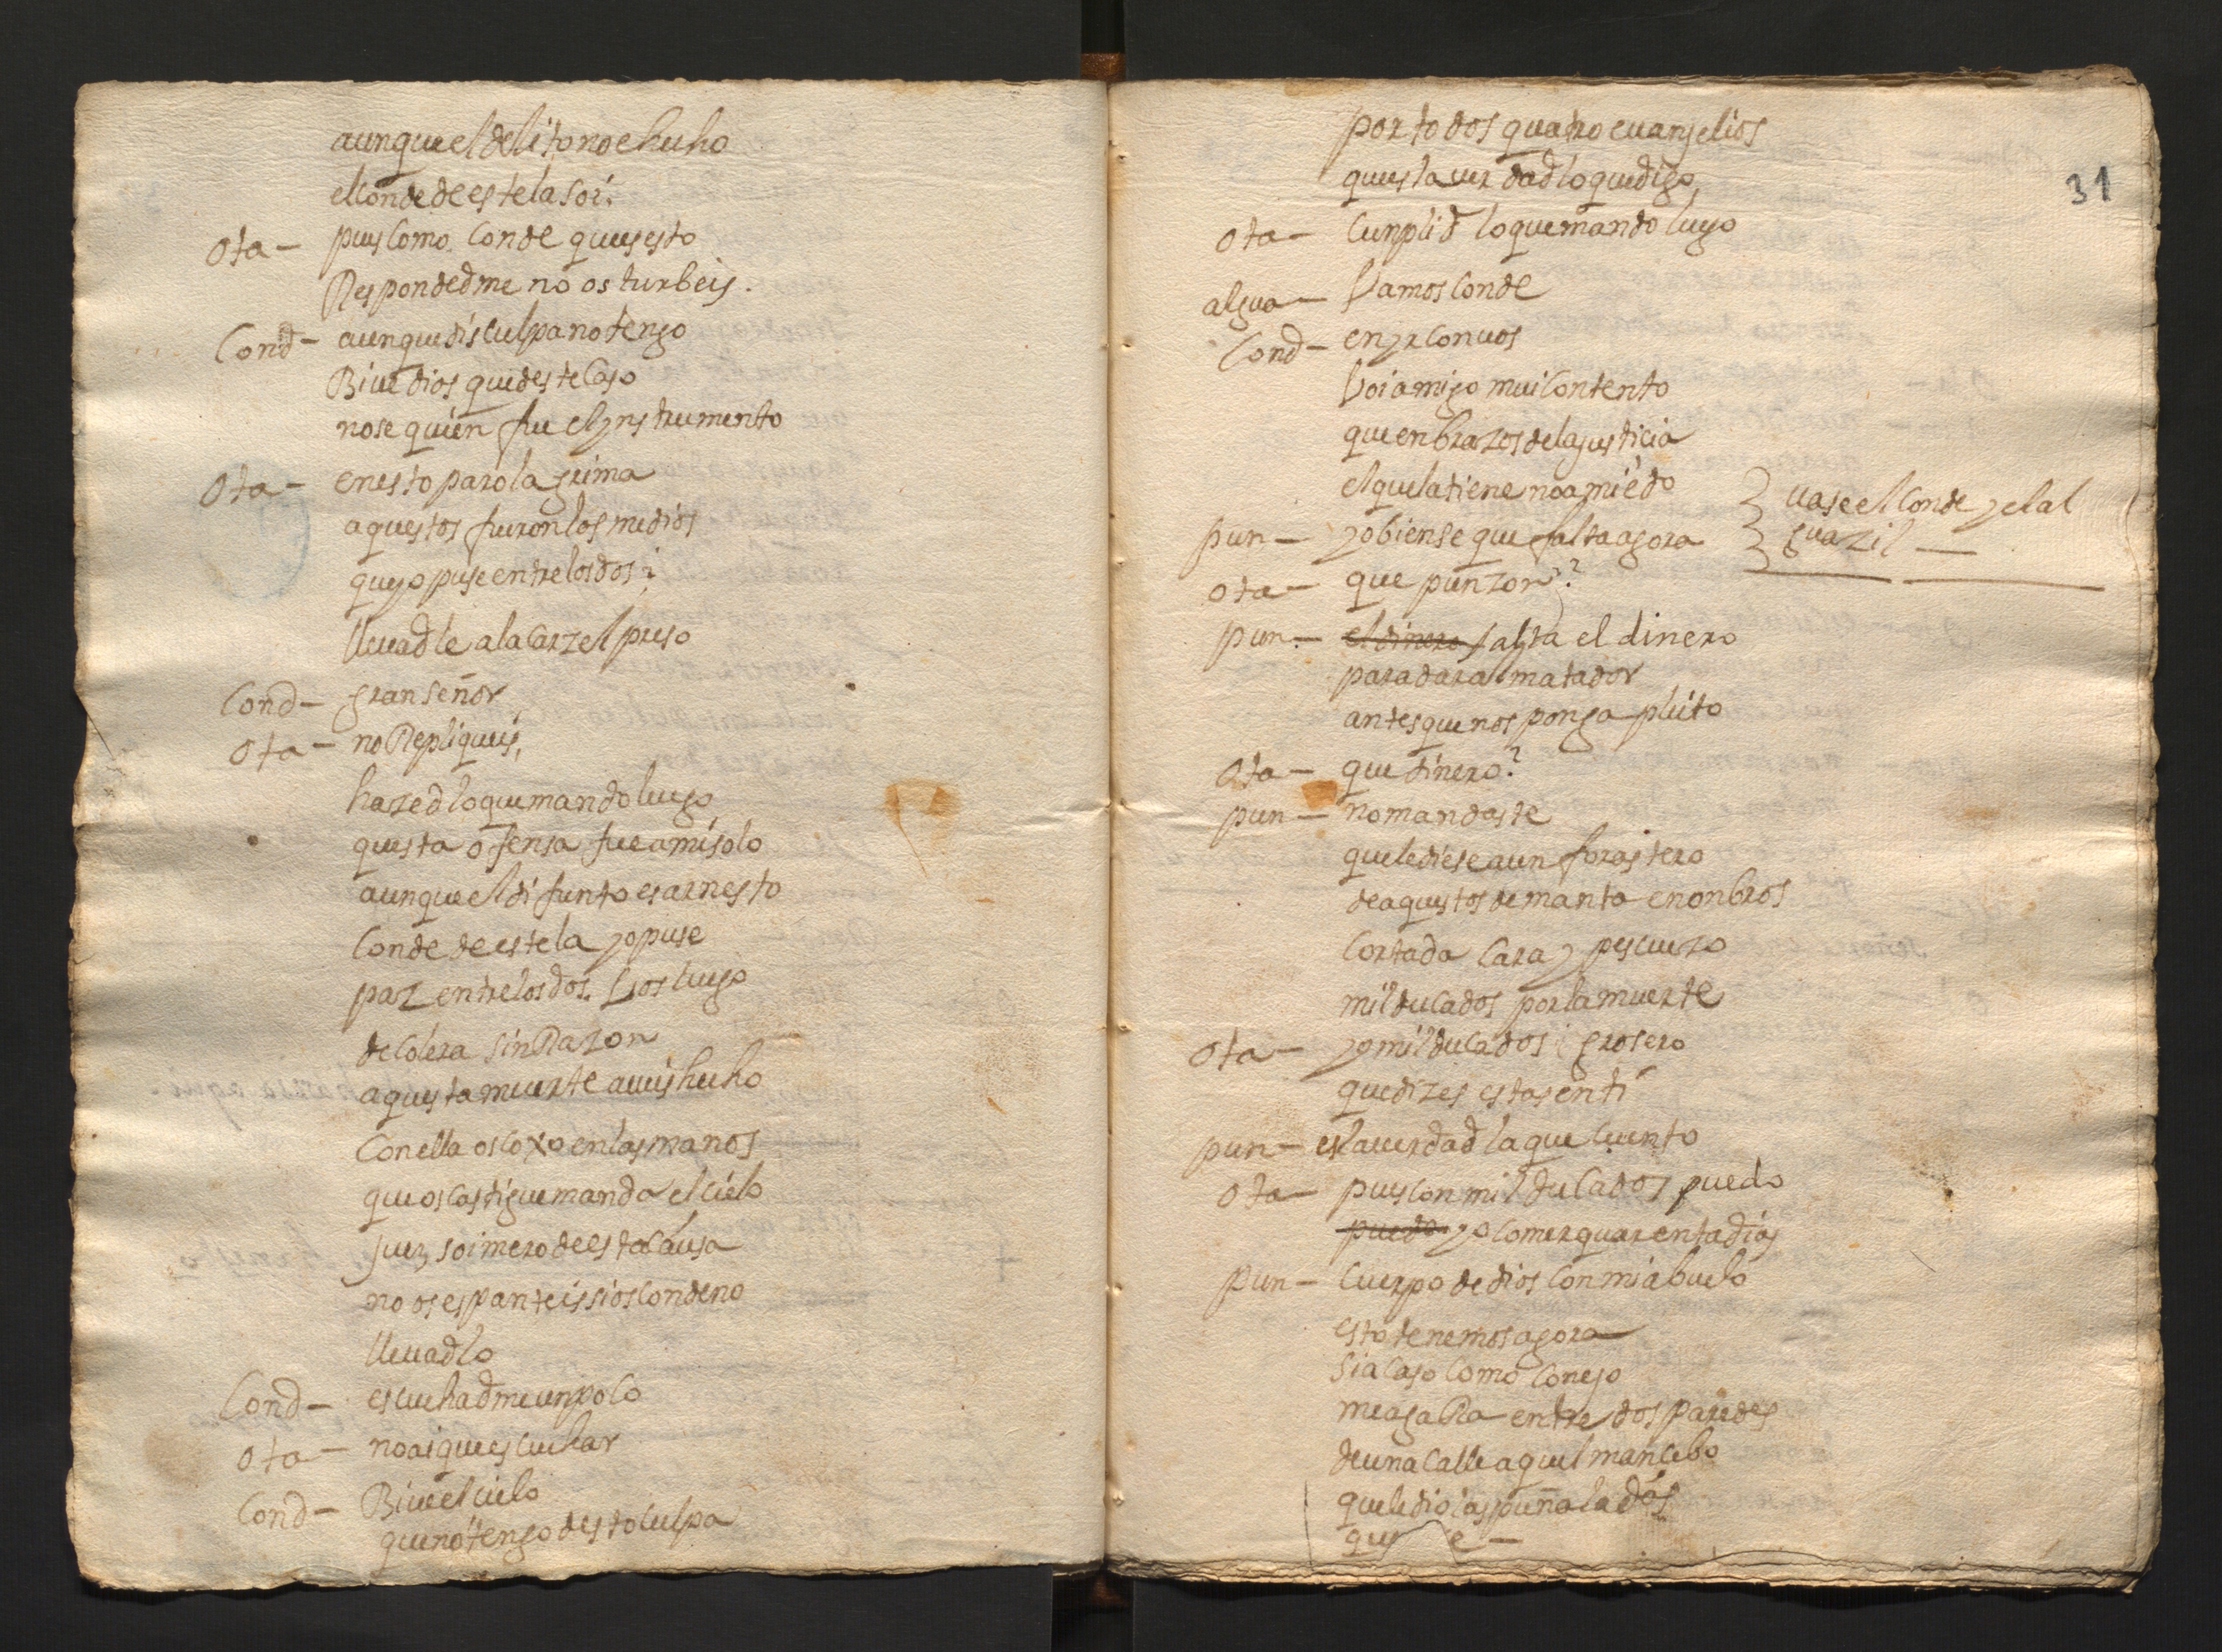 aunque el delito no e hecho
el conde de estela soi.
ota— pues como conde que es esto
Respondedme no os turbeis.
Cond— aunque disculpa no tengo
Biue dios que deste caso
no se quien fue el ynstrumento
ota— en esto paro la grima
aquestos fueron los medios
que yo puse entre los dos ¿
lleuadle a la carzel preso
Cond— gran señor
ota— no Repliqueis,
hazed lo que mando luego
questa ofensa fue a mi solo
aunque el difunto es arnesto
conde de estela yo puse
paz entre los dos. Lios luego
de colera sin Razon
aquesta muerte aueis hecho
con ella os coxo en las manos
que os castigue manda el cielo
juez soi mero de esta causa
no os espanteis si os condeno
lleuadlo
Cond— escuchadme un poco
ota— no ai que escuchar
Cond— Biue el cielo
que no tengo desto culpa
31
por todos quatro euangelios
ques la uerdad lo que digo,
ota— cunplid lo que mando luego
algua— Vamos conde
Cond— en yr con uos
Voi amigo mui contento
que en brazos de la justicia
el que la tiene no a miedo
uase el conde y el al
guazil —
pun— yo bien se que falta agora
ota— que punzon?
pun— el dinero falta el dinero
para dar al matador
antes que nos ponga pleito
ota— que dinero?
pun— no mandaste
que le diese a un forastero
de aquestos de manta en onbros
cortada cara y pescuezo
mil ducados por la muerte
ota— yo mil ducados ¡ grosero
que dizes estas en ti
pun— es la uerdad la que cuento
ota— pues con mil ducados puedo
puedo yo comer quarenta dias
pun— cuerpo de dios con mi abuelo
esto tenemos agora
si acaso como conejo
me agaRa entre dos paredes
de una calle aquel mancebo
que le dio las puñaladas